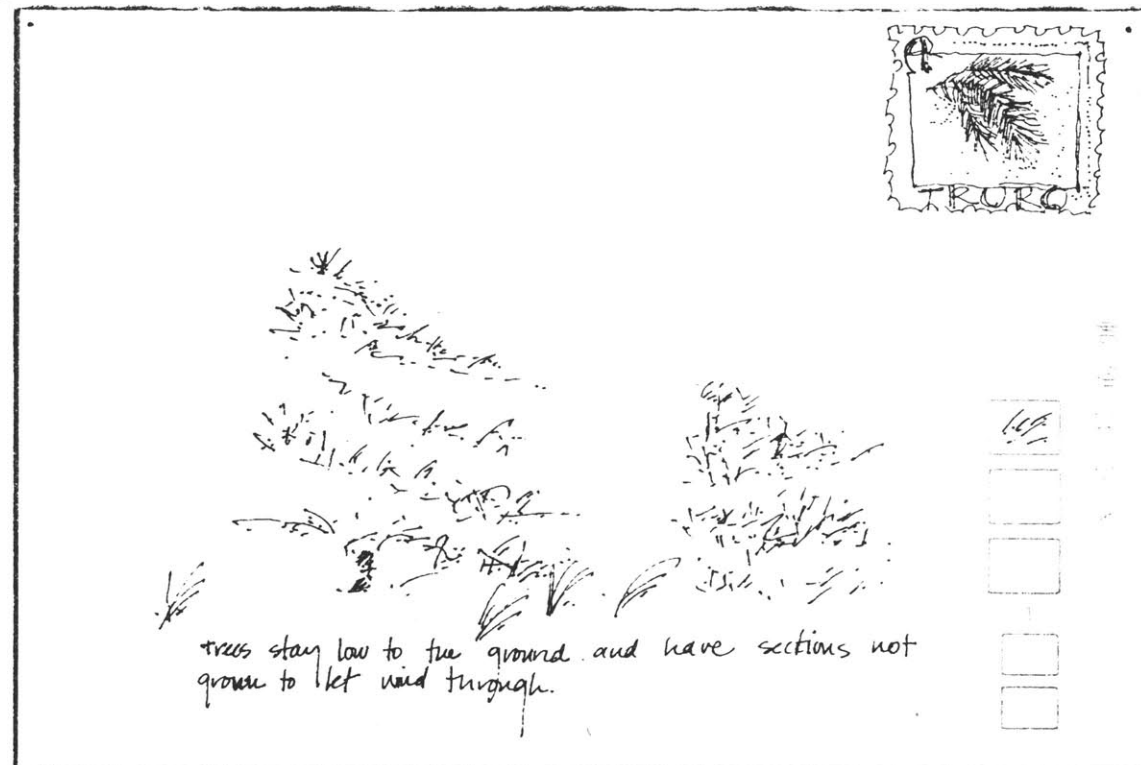 TRURO
trees stay low to the ground and have sections not
grown to let wind through.